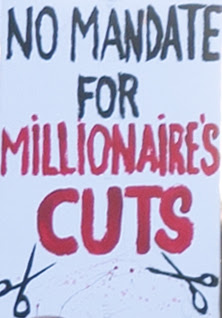 NO MANDATE
FOR
MILLIONAIRE'S
CUTS